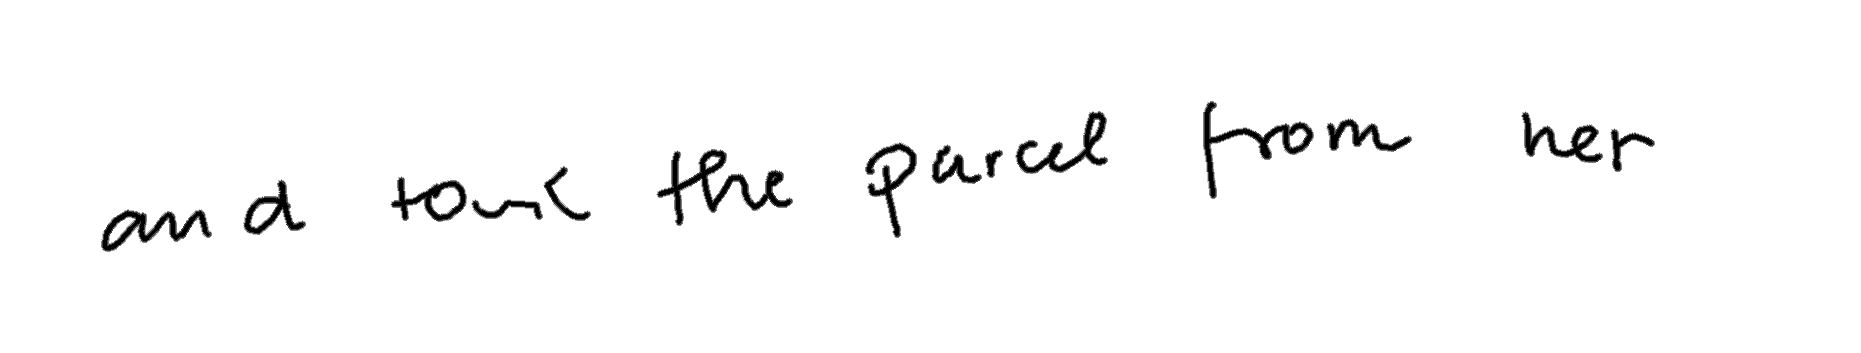 and took the parcel from her